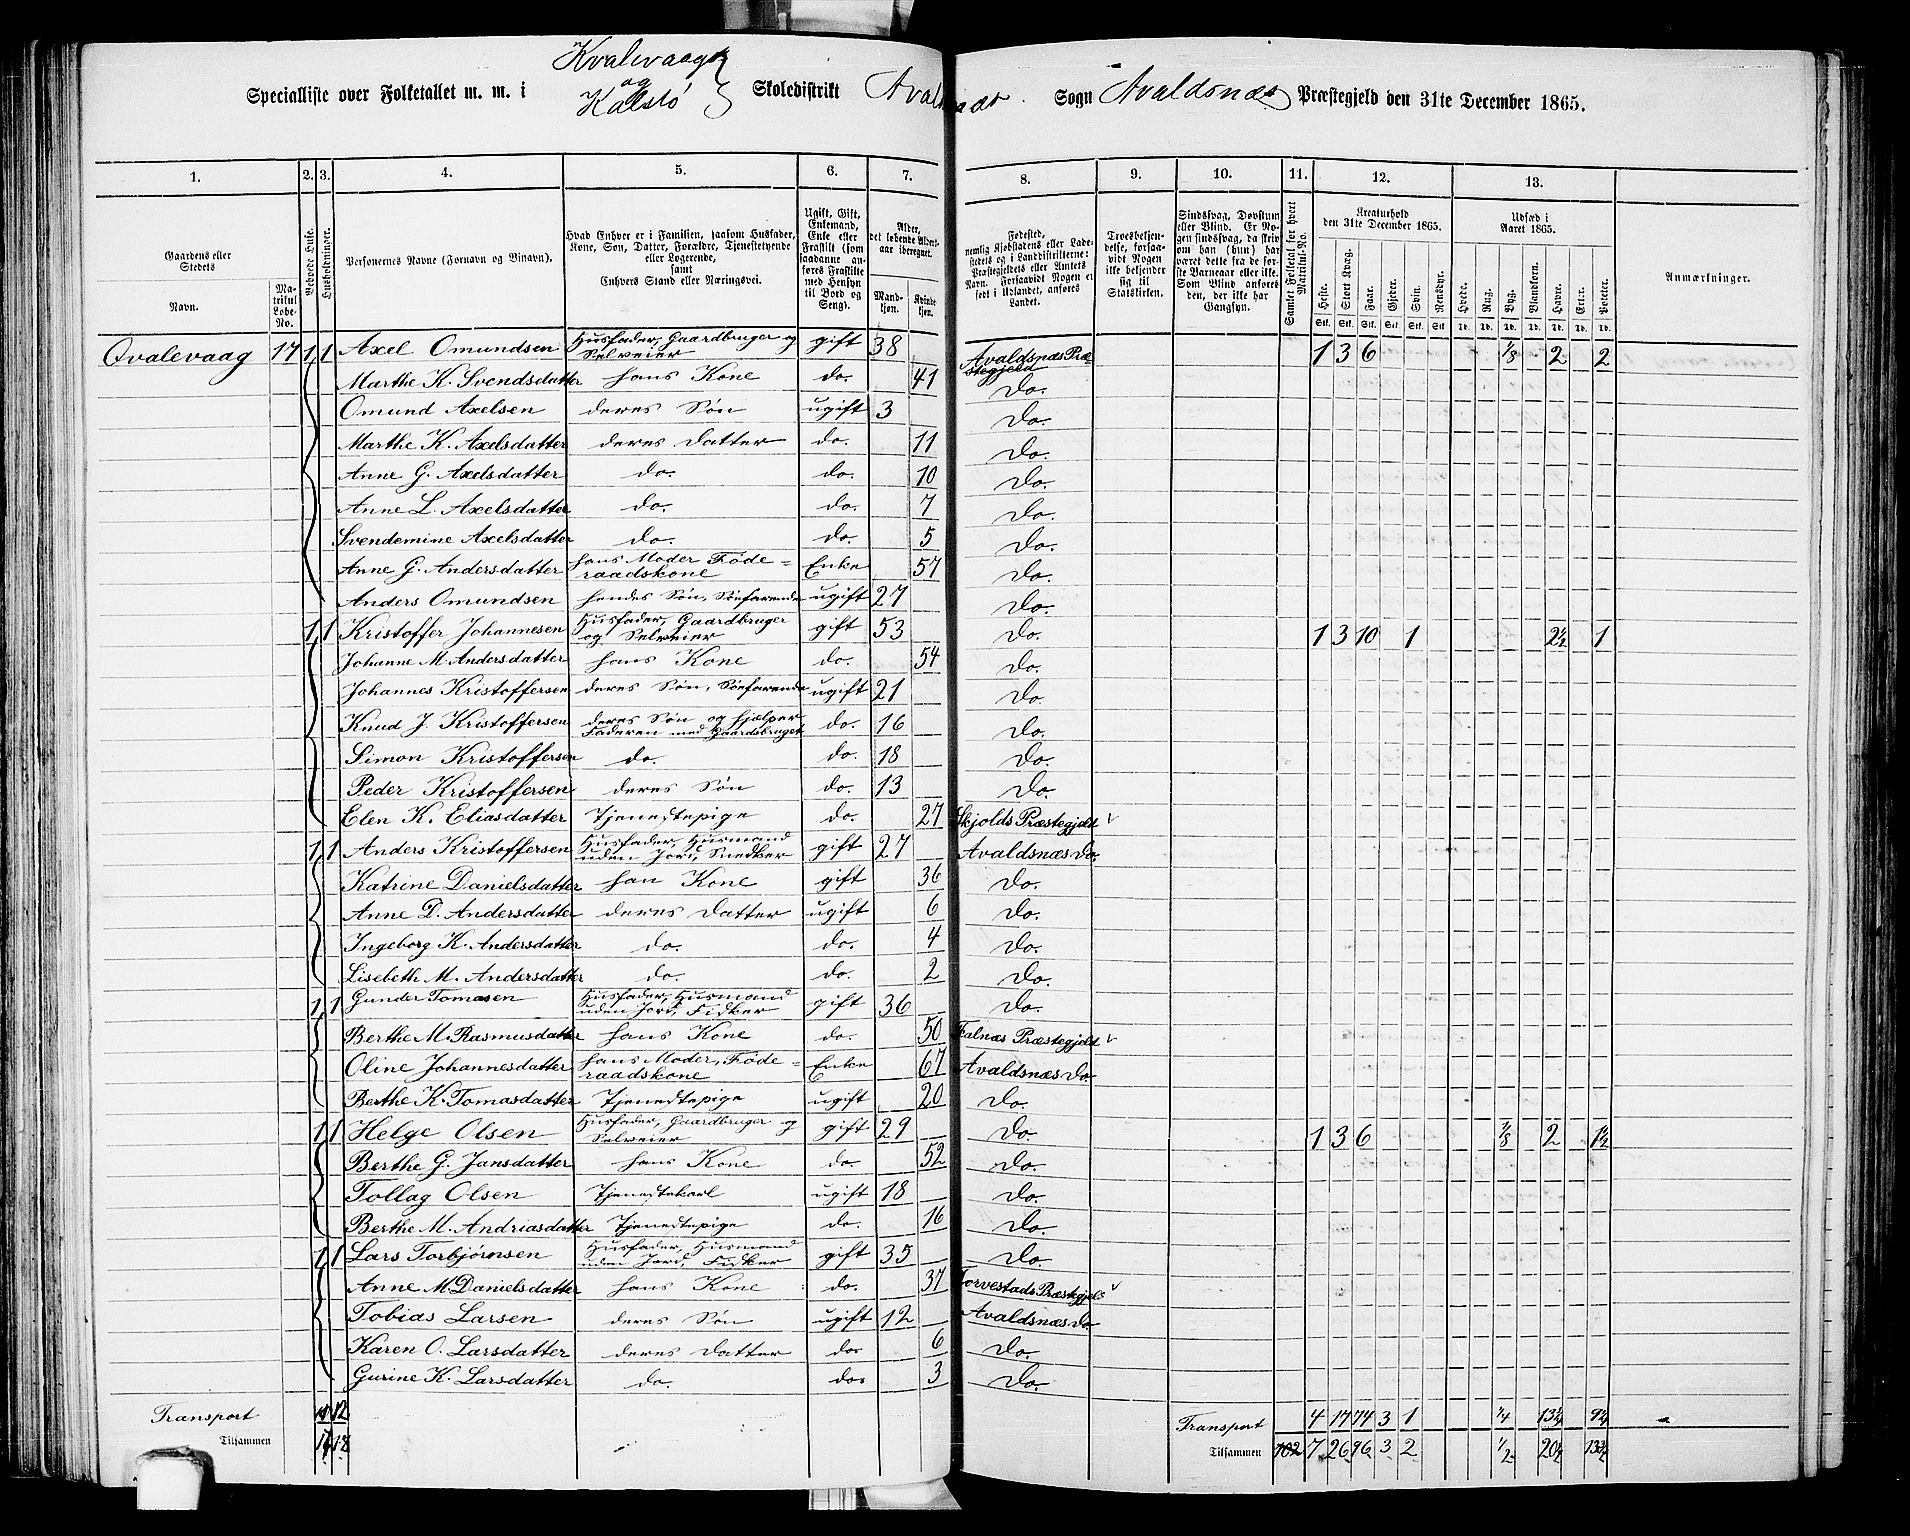 Kvalevaag
og
Kalstø
Specialliste over Folketallet m. m. i Skoledistrikt Avaldsnæs Sogn Avaldsnæs Præstegjeld den 31te December 1865.
1. 2. 3. 4. 5. 6. 7. 8. 9. 10. 11. 12. 13.
Gaardens eller Stedets
Navn. Matrikul Løbe-No.
Beboede Huse.
Husholdninger.
Personernes Navne (Fornavn og Binavn).
Hvad Enhver er i Familien, saasom Husfader, Kone, Søn, Datter, Forældre, Tjenestetyende eller Logerende, samt Enhvers Stand eller Næringsvei.
Ugift, Gift, Enkemand, Enke eller Fraskilt (som saadanne anføres Fraskilte med Hensyn til Bord og Seng).
Alder, det løbende Aldersaar iberegnet.
Mandkjøn. Kvindekjøn.
Fødested, nemlig Kjøbstadens eller Ladestedets og i Landdistrikterne: Præstegjeldets eller Amtets Navn. Forsaavidt Nogen er født i Udlandet, anføres Landet.
Troesbekjendelse, forsaavidt Nogen ikke bekjender sig til Statskirken.
Sindssvag, Døvstum eller Blind. Er Nogen sindssvag, da skrives om han (hun) har været dette fra de første Barneaar eller ikke. Som Blind anføres den, der ikke har Gangsyn.
Samlet Folketal for hvert Matrikul-No.
Kreaturhold den 31te December 1865.
Heste. Stort Kvæg. Faar. Gjeder. Svin. Rensdyr.
Udsæd i Aaret 1865.
Hvede. Rug. Byg. Blandkorn. Havre. Erter. Poteter.
Anmærkninger.
Qvalevaag 17 1 1 Axel Omundsen Husfader, Gaardbruger og Selveier gift 38 Avaldsnæs Præstegjeld 1 3 6 1/8 2 2
Marthe K. Svendsdatter hans Kone do. 41 Do.
Omund Axelsen deres Søn ugift 3 Do.
Marthe K. Axelsdatter deres Datter do. 11 Do.
Anne G. Axelsdatter do. do. 10 Do.
Anne L. Axelsdatter do. do. 7 Do.
Svendemine Axelsdatter do. do. 5 Do.
Anne G. Andersdatter hans Moder Føderaadskone Enke 57 Do.
Anders Omundsen hendes Søn, Søefarende ugift 27 Do.
1 1 Kristoffer Johannesen Husfader, Gaardbruger og Selveier gift 53 Do. 1 3 10 1 2½ 1
Johanne M. Andersdatter hans Kone do. 54 Do.
Johannes Kristoffersen deres Søn, Søefarende ugift 21 Do.
Knud J. Kristoffersen deres Søn og hjælper Faderen med Gaardsbruget do. 16 Do.
Simon Kristoffersen do. do. 18 Do.
Peder Kristoffersen deres Søn do. 13 Do.
Elen K. Eliasdatter Tjenestepige do. 27 Skjolds Præstegjeld
1 1 Anders Kristoffersen Husfader, Husmand uden Jord, Snedker gift 27 Avaldsnæs Do.
Katrine Danielsdatter han Kone gift 36 Do.
Anne D. Andersdatter deres Datter ugift 6 Do.
Ingeborg K. Andersdatter do. do. 4 Do.
Lisebeth M. Andersdatter do. do. 2 Do.
1 1 Gunder Tomasen Husfader, Husmand uden Jord, Fisker gift 36 Do.
Berthe M. Rasmusdatter hans Kone do. 50 Falnæs Præstegjeld
Oline Johannesdatter hans Moder, Føderaadskone Enke 67 Avaldsnæs Do.
Berthe K. Tomasdatter Tjenestepige ugift 20 Do.
1 1 Helge Olsen Husfader, Gaardbruger og Selveier gift 29 Do. 1 3 6 1/8 2 1½
Berthe G. Jansdatter hans Kone do 52 Do.
Tollag Olsen Tjenestekarl ugift 18 Do.
Berthe M. Andriasdatter Tjenestepige do. 16 Do.
1 1 Lars Torbjørnsen Husfader, Husmand uden Jord, Fisker gift 35 Do.
Anne M. Danielsdatter hans Kone do. 37 Torvestads Præstegjeld
Tobias Larsen deres Søn ugift 12 Avaldsnæs Do
Karen O. Larsdatter deres Datter do. 6 Do.
Gurine K. Larsdatter do. do. 3 Do.
Transport 12 Transport 4 17 74 3 1 1/4 13¼ 9¼
Tilsammen 18 Tilsammen 102 7 26 96 3 2 1/2